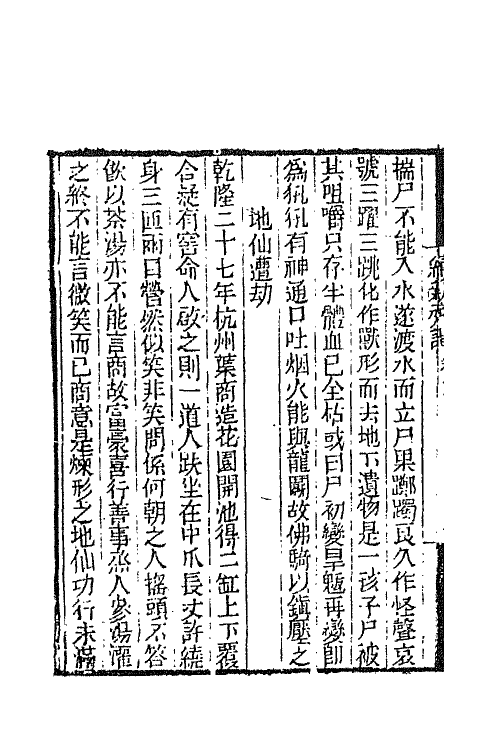 續新齊諧
揣尸不能入水遂渡水而立尸果躑躅良久作怪聲哀
號三躍三跳化作獸形而去地下遺物是一孩子尸被
其咀嚼只存半體血已全枯或曰尸初變旱魃再變卽
爲犼犼有神通口吐烟火能與龍鬬故佛騎以鎮壓之
地仙遭劫
乾隆二十七年杭州葉商造花園開池得二缸上下覆
合疑有窖命人啟之則一道人趺坐在中爪長丈許繞
身三匝兩目瑩然似笑非笑問係何朝之人搖頭不答
飲以茶湯亦不能言商故富豪喜行善事蒸人參湯灌
之終不能言微笑而已商意是煉形之地仙功行未滿